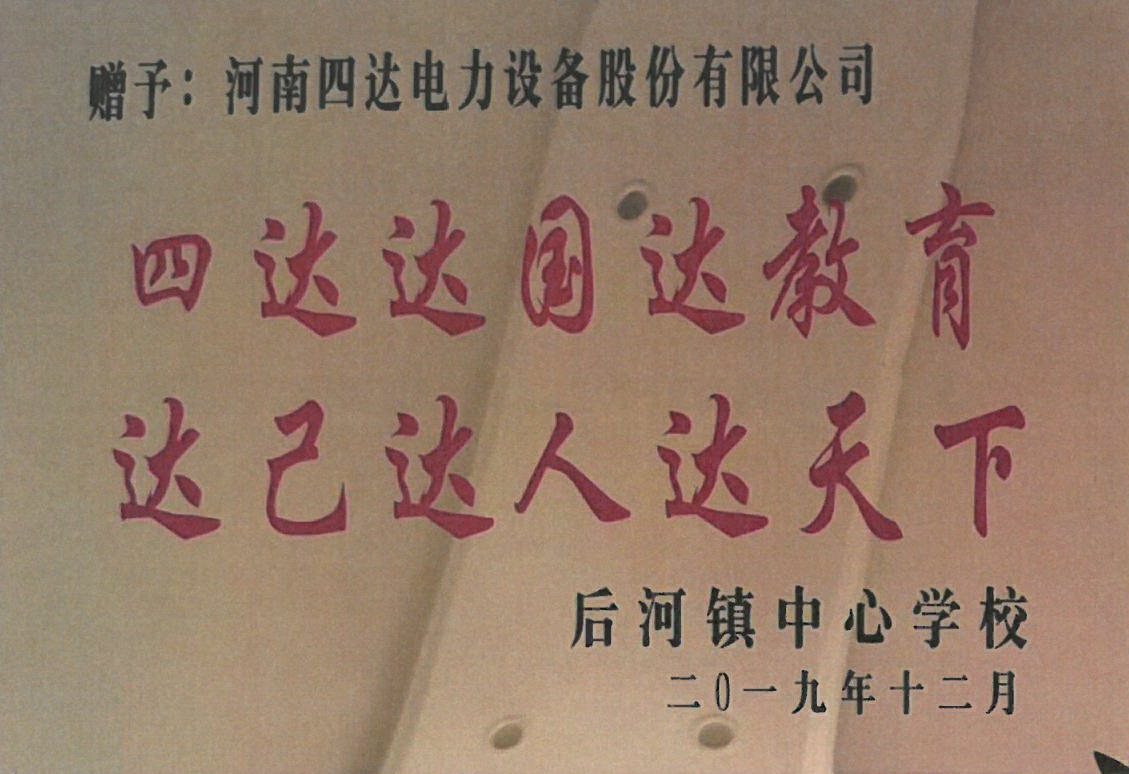 赠予：河南四达电力设备股份有限公司
四达达国达教育
达己达人达天下
后河镇中心学校
二0一九年十二月